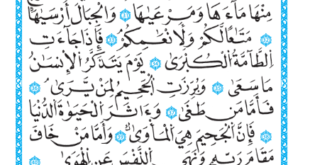 مِنْهَا مَآءَهَا وَمَرْعَىٰهَا ۝ وَالْجِبَالَ أَرْسَىٰهَا
۝ مَتَاعًا لَكُمْ وَلِأَنْعَامِكُمْ ۝ فَإِذَا جَآءَتِ
الطَّآمَّةُ الْكُبْرَىٰ ۝ يَوْمَ يَتَذَكَّرُ الْإِنسَانُ
مَا سَعَىٰ ۝ وَبُرِّزَتِ الْجَحِيمُ لِمَن يَرَىٰ ۝
فَأَمَّا مَن طَغَىٰ ۝ وَءَاثَرَ الْحَيَوٰةَ الدُّنْيَا
۝ فَإِنَّ الْجَحِيمَ هِيَ الْمَأْوَىٰ ۝ وَأَمَّا مَنْ خَافَ
مَقَامَ رَبِّهِ وَنَهَى النَّفْسَ عَنِ الْهَوَىٰ